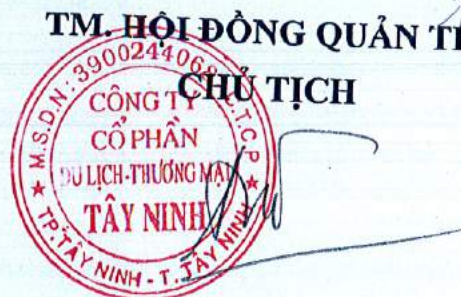 TM. HỘI ĐỒNG QUẢN
CHỦ TỊCH
M.S.D.N: 390024406
C.T.C.P
CÔNG TY
CỔ PHẦN
DU LỊCH-THƯƠNG MẠI
TÂY NINH
TP.TÂY NINH - T. TÂY NINH